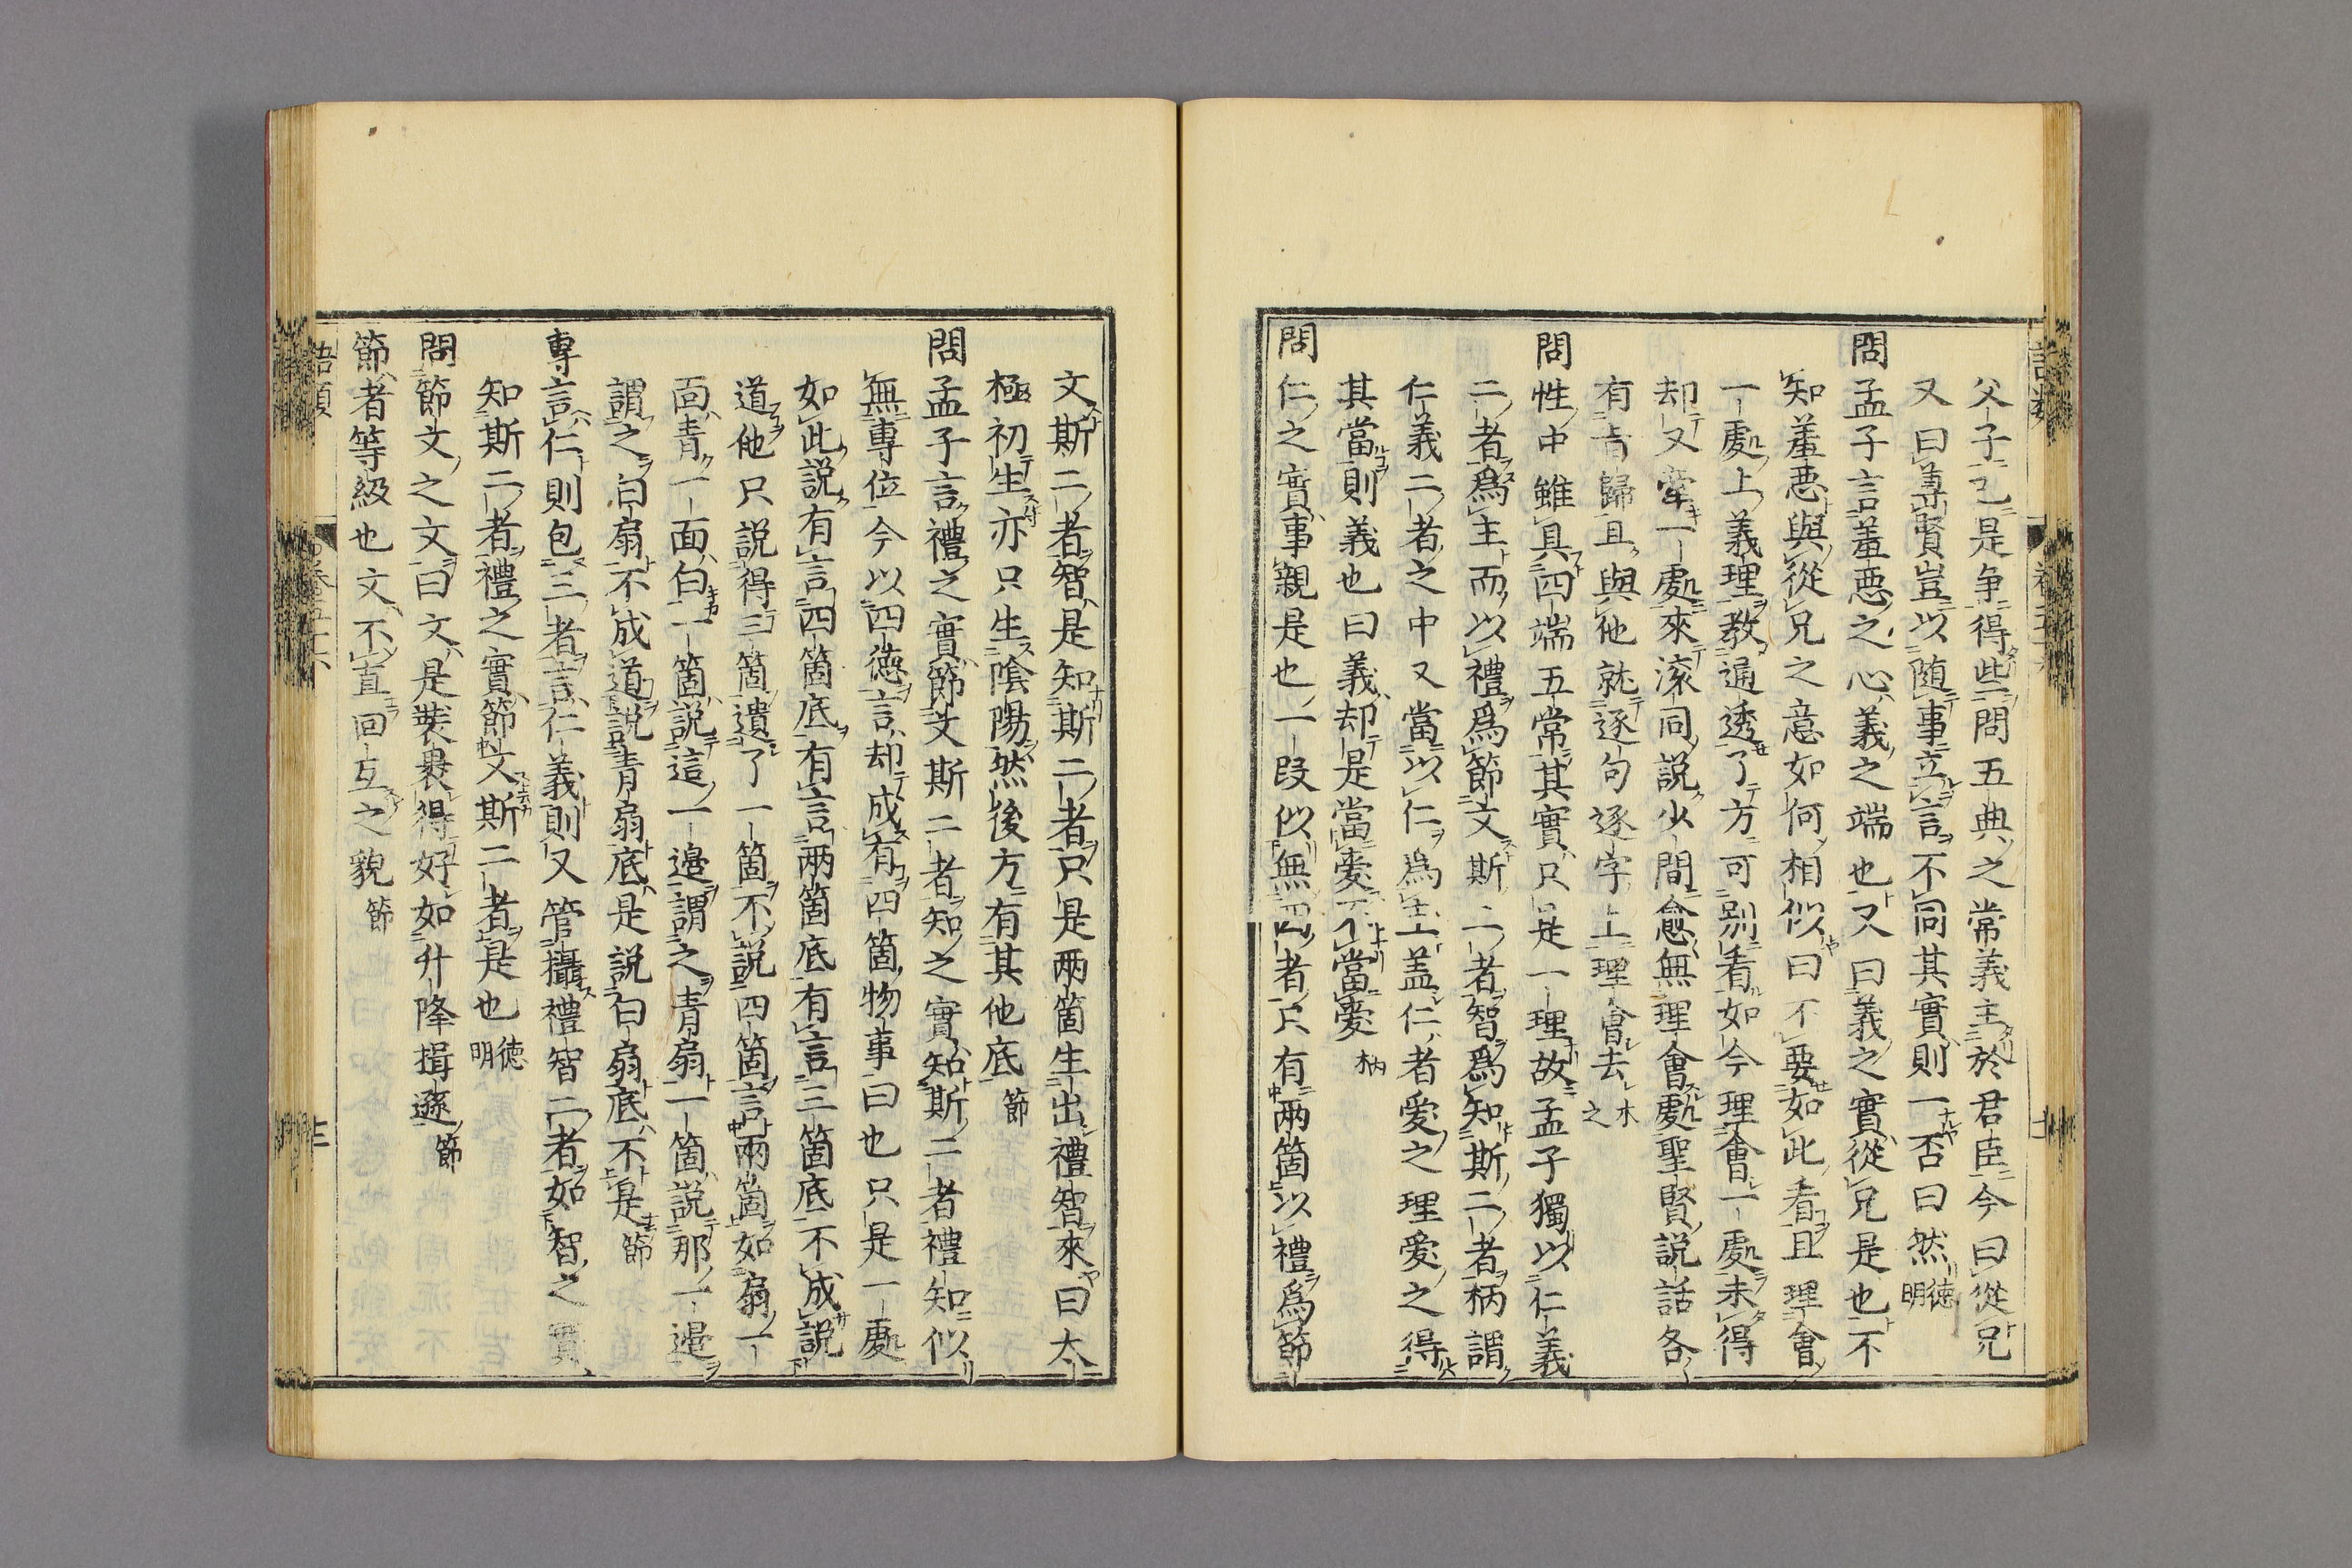 父子已是争得些問五典之常義主於君臣今曰從兄
又曰尊賢豈以随事立言不同其實則一否曰然 德明
問孟子言羞惡之心義之端也又曰義之實從兄是也不
知羞惡與從兄之意如何相似曰不要如此看且理會
一處上義理教通透了方可別看如今理會一處未得
却又牽一處來滚同說少間愈無理會處聖賢說話各
有旨歸且與他就逐句逐字上理會去 木之
問性中雖具四端五常其實只是一理故孟子獨以仁義
二者爲主而以禮爲節文斯二者智爲知斯二者柄謂
仁義二者之中又當以仁爲主盖仁者愛之理愛之得
其當則義也曰義却是當愛不當愛 柄
問仁之實事親是也一段似無四者只有兩箇以禮爲節
文斯二者智是知斯二者只是兩箇生出禮智來曰太
極初生亦只生陰陽然後方有其他底 節
問孟子言禮之實節文斯二者知之實知斯二者禮知似
無專位今以四德言却成有四箇物事曰也只是一處
如此說有言四箇底有言兩箇底有言三箇底不成說
道他只說得三箇遺了一箇不說四箇言兩箇如扇一
面青一面白一箇說這一邊謂之青扇一箇說那一邊
謂之白扇不成道說青扇底是說白扇底不是 節
專言仁則包三者言仁義則又管攝禮智二者如智之實
知斯二者禮之實節文斯二者是也 德明
問節文之文曰文是裝裹得好如升降揖遜 節
節者等級也文不直回互之貌 節
語類